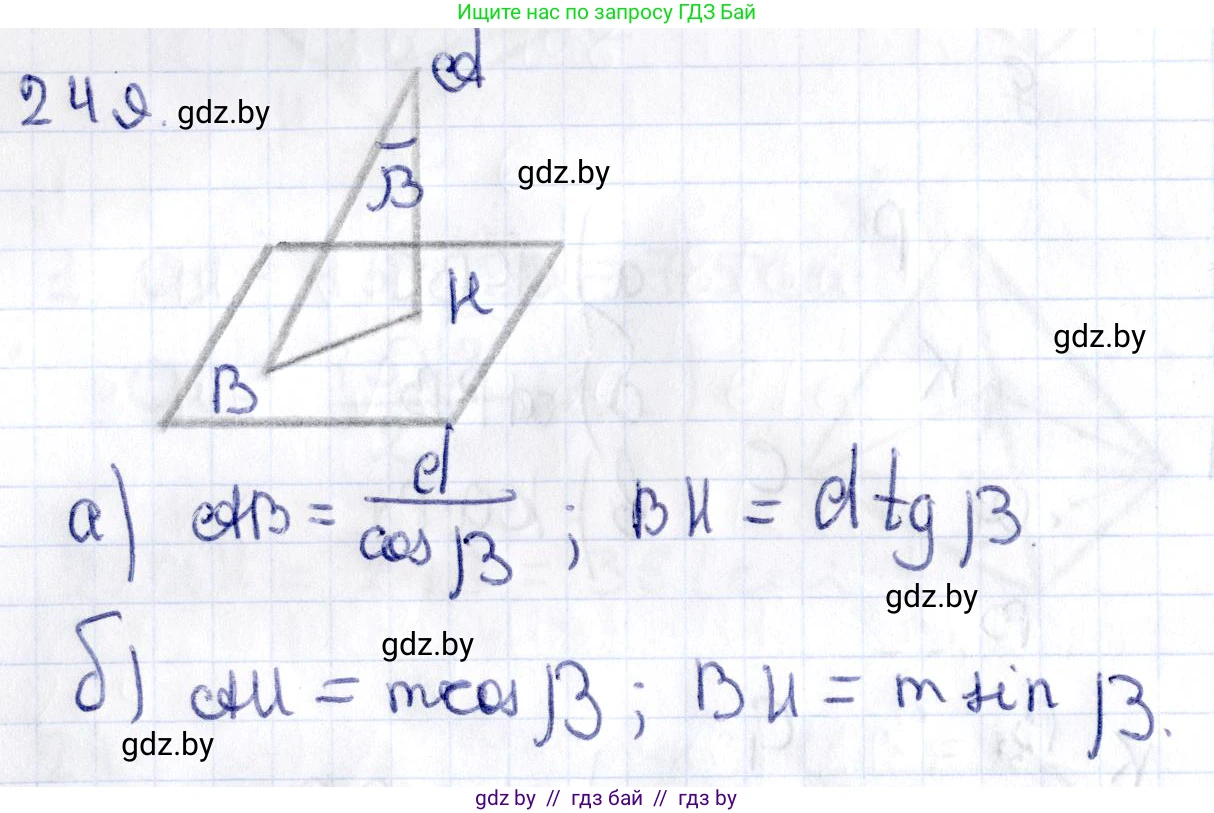 Ищите нас по запросу ГДЗ Бай
249. gdz.by
A
β
gdz.by
H
gdz.by
B
а) AB = d / cos β ; BH = d tg β.
gdz.by
gdz.by
б) AH = m cos β ; BH = m sin β.
gdz.by
gdz by // гдз бай // гдз by